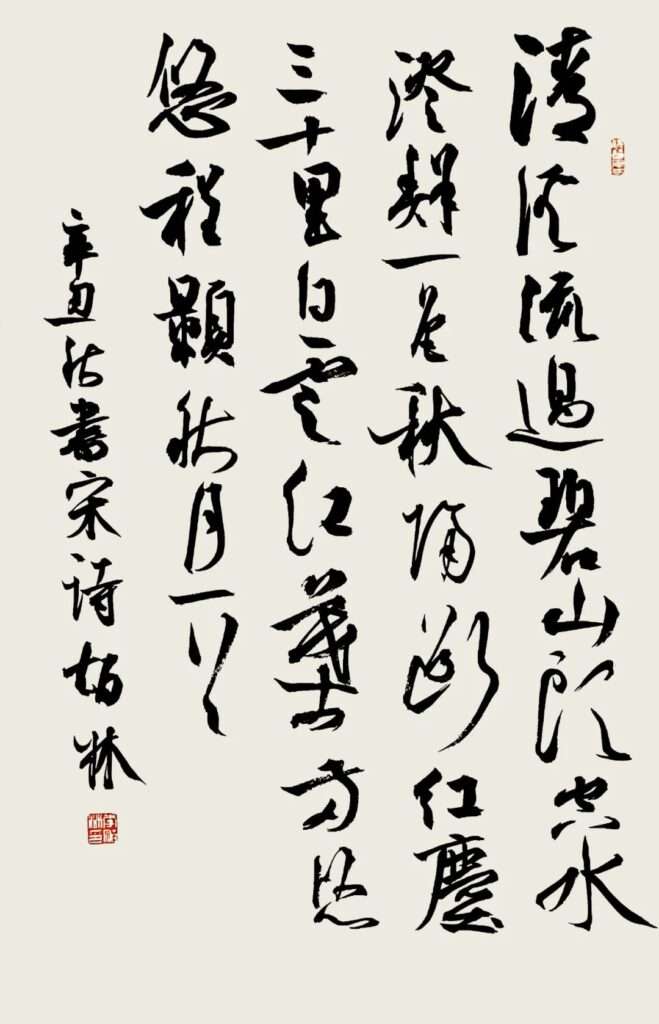 清溪流過碧山頭空水
澄鮮一色秋隔斷紅塵
三十里白雲紅葉两悠
悠程顥秋月一首
辛丑秋書宋詩林